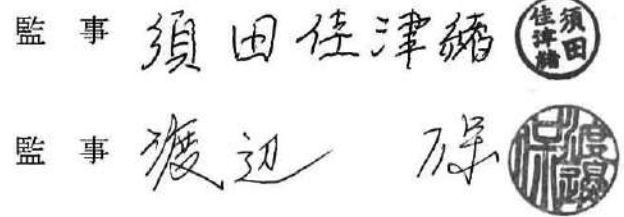 監 事 須田佳津緒 須田佳津緒
監 事 渡辺 保 渡邊保